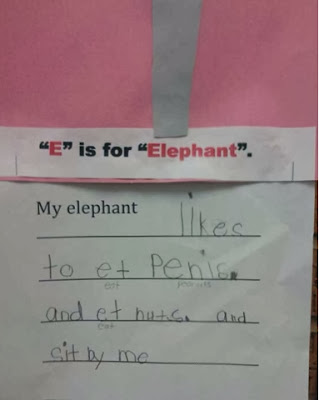 "E" is for "Elephant".
My elephant likes
to et Penis.
eat peanuts
and et nuts. and
eat
sit by me